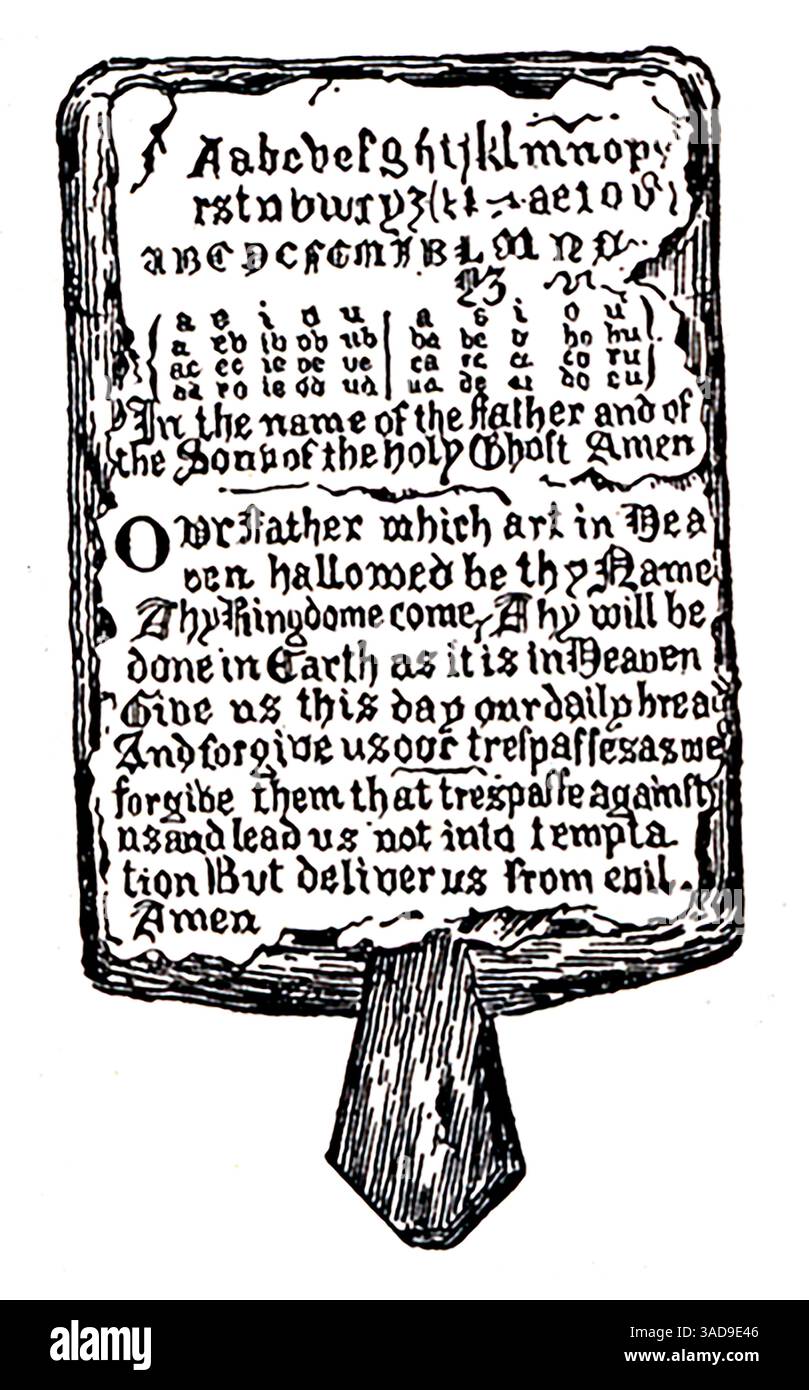 Aabcdefghijklmnop
rstuvwxyz aeiou
a e i o u a e i o u
In the name of the father and of
the Sonne of the holy Ghost Amen
OWr Father which art in Hea
ven hallowed be thy Name
Thy Kingdome come, Thy will be
done in Earth as it is in Heaven
Give us this day our daily brea
And forgive us our trespasses as we
forgive them that trespasse against
us and lead us not into tempta
tion But deliver us from evil.
Amen
alamy
Image ID: 3AD9E46
www.alamy.com